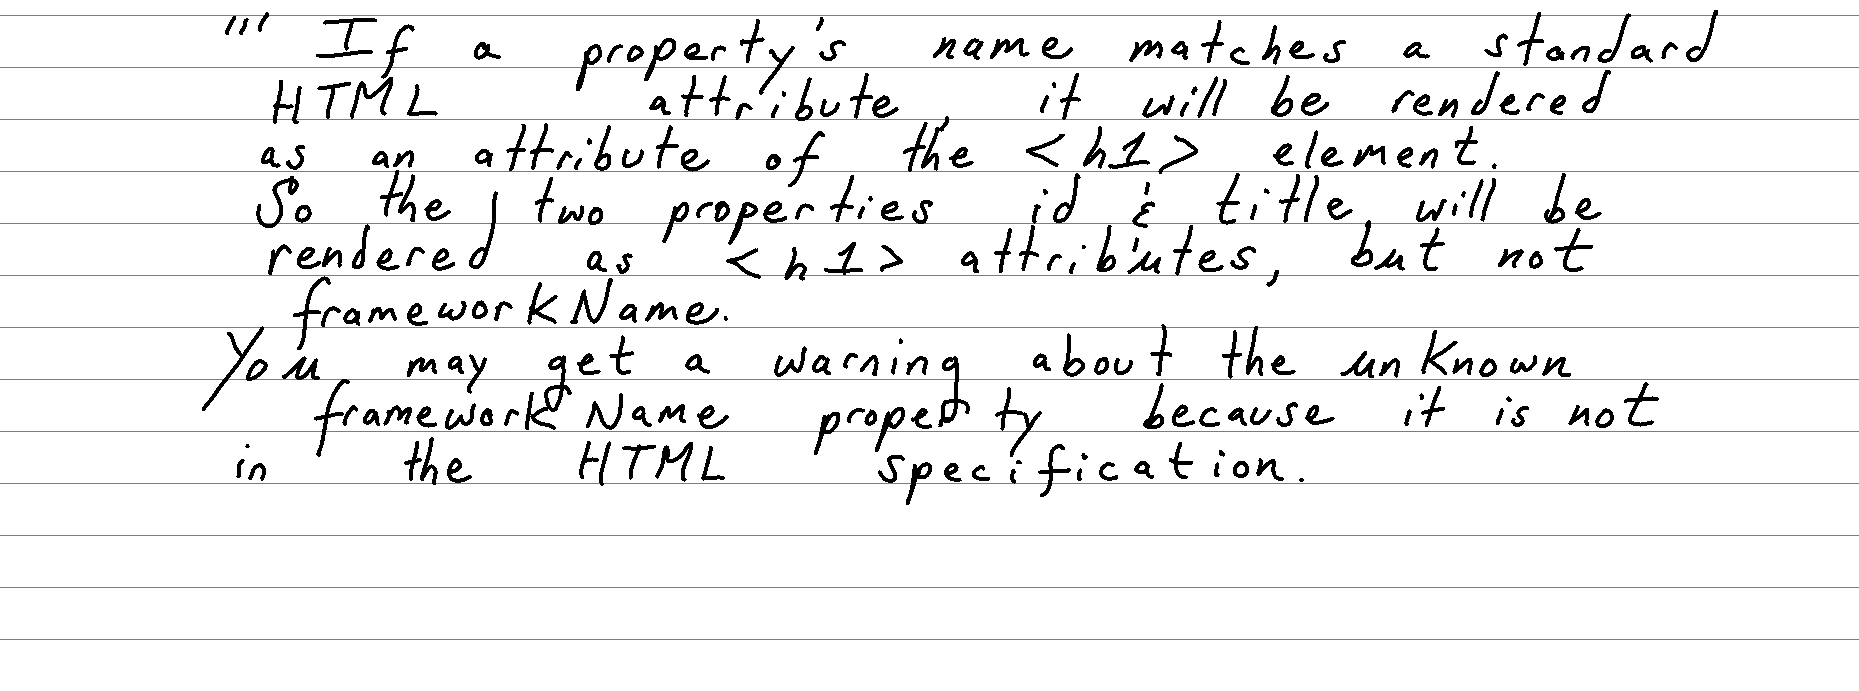 ''' If a property's name matches a standard
HTML attribute, it will be rendered
as an attribute of the <h1> element.
So the two properties id & title, will be
rendered as <h1> attributes, but not
frameworkName.
You may get a warning about the unknown
frameworkName property because it is not
in the HTML specification.